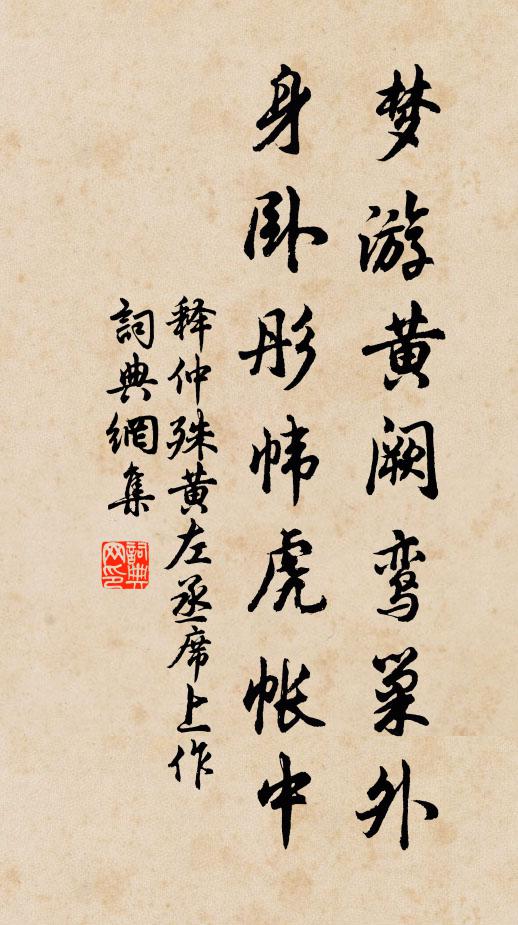 梦游黄阙鸾巢外
身卧彤帏虎帐中
释仲殊黄左丞席上作
詞典網集
詞典网印